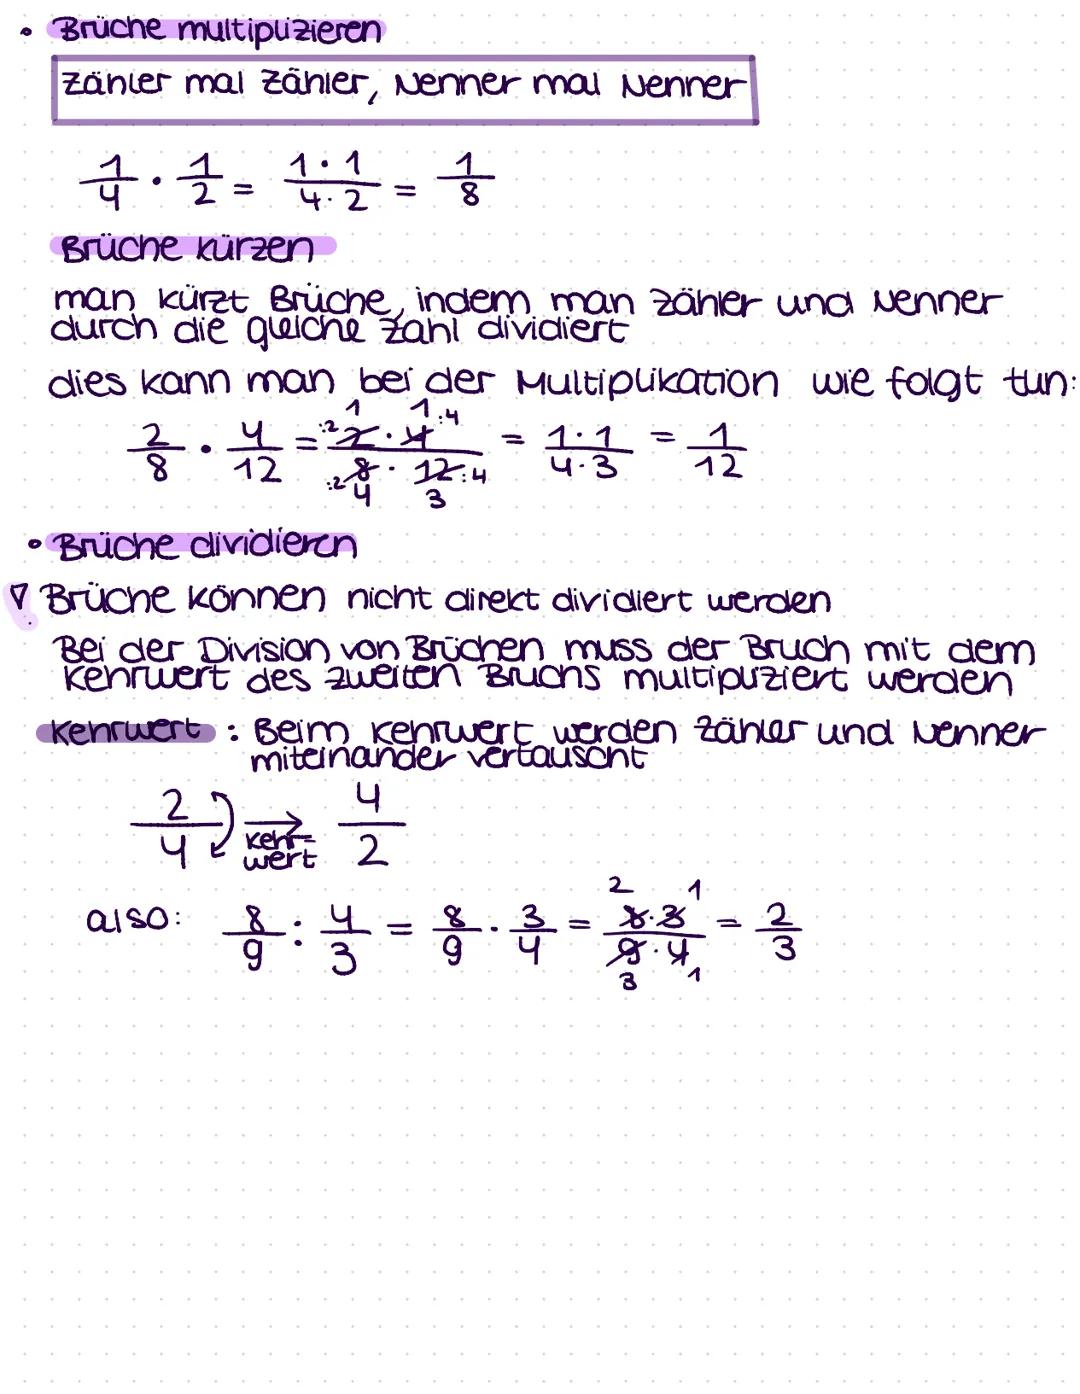 • Brüche multiplizieren
Zähler mal Zähler, Nenner mal Nenner
1/4 · 1/2 = 1·1/4·2 = 1/8
Brüche kürzen
man kürzt Brüche, indem man Zähler und Nenner
durch die gleiche Zahl dividiert
dies kann man bei der Multiplikation wie folgt tun:
1 1 :4
2/8 · 4/12 = :2 2·4/8·12 = 1·1/4·3 = 1/12
:2 :4
4 3
• Brüche dividieren
Brüche können nicht direkt dividiert werden
Bei der Division von Brüchen muss der Bruch mit dem
Kehrwert des zweiten Bruchs multipliziert werden
Kehrwert : Beim Kehrwert werden Zähler und Nenner
miteinander vertauscht
2/4 → 4/2
Kehr-
wert
2 1
also: 8/9 : 4/3 = 8/9 · 3/4 = 8·3/9·4 = 2/3
3 1